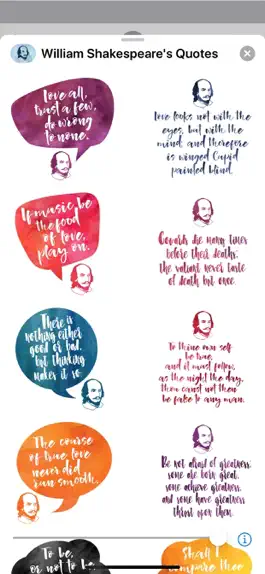 William Shakespeare's Quotes
Love all,
trust a few,
do wrong
to none.
Love looks not with the
eyes, but with the
mind, and therefore
is winged Cupid
painted blind.
If music be
the food
of love,
play on.
Cowards die many times
before their deaths;
the valiant never taste
of death but once.
There is
nothing either
good or bad,
but thinking
makes it so.
To thine own self
be true,
and it must follow,
as the night the day,
thou canst not then
be false to any man.
The course
of true love
never did
run smooth.
Be not afraid of greatness:
some are born great,
some achieve greatness,
and some have greatness
thrust upon them.
To be,
or not to be
Shall I
compare thee